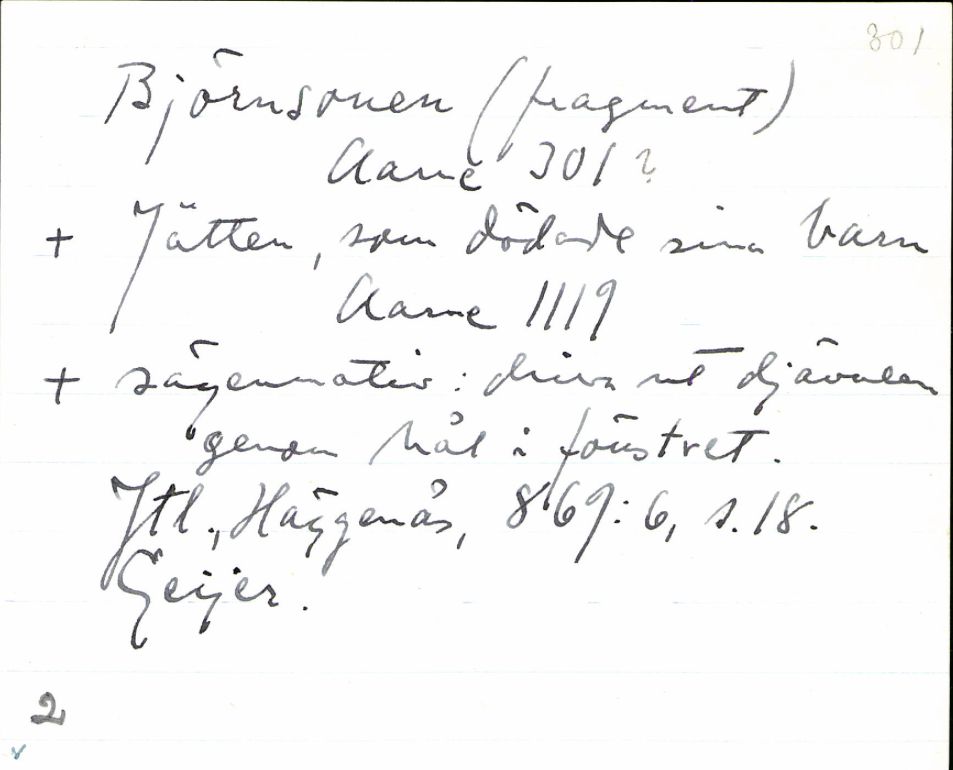 301
Björnsonen (fragment)
Aarne 301?
+ Jätten, som dödade sina barn
Aarne 1119
+ sägenmotiv: driva ut djävulen
genom hål i fönstret.
Jtl., Häggenås, 869:6, s. 18.
Geijer.
2